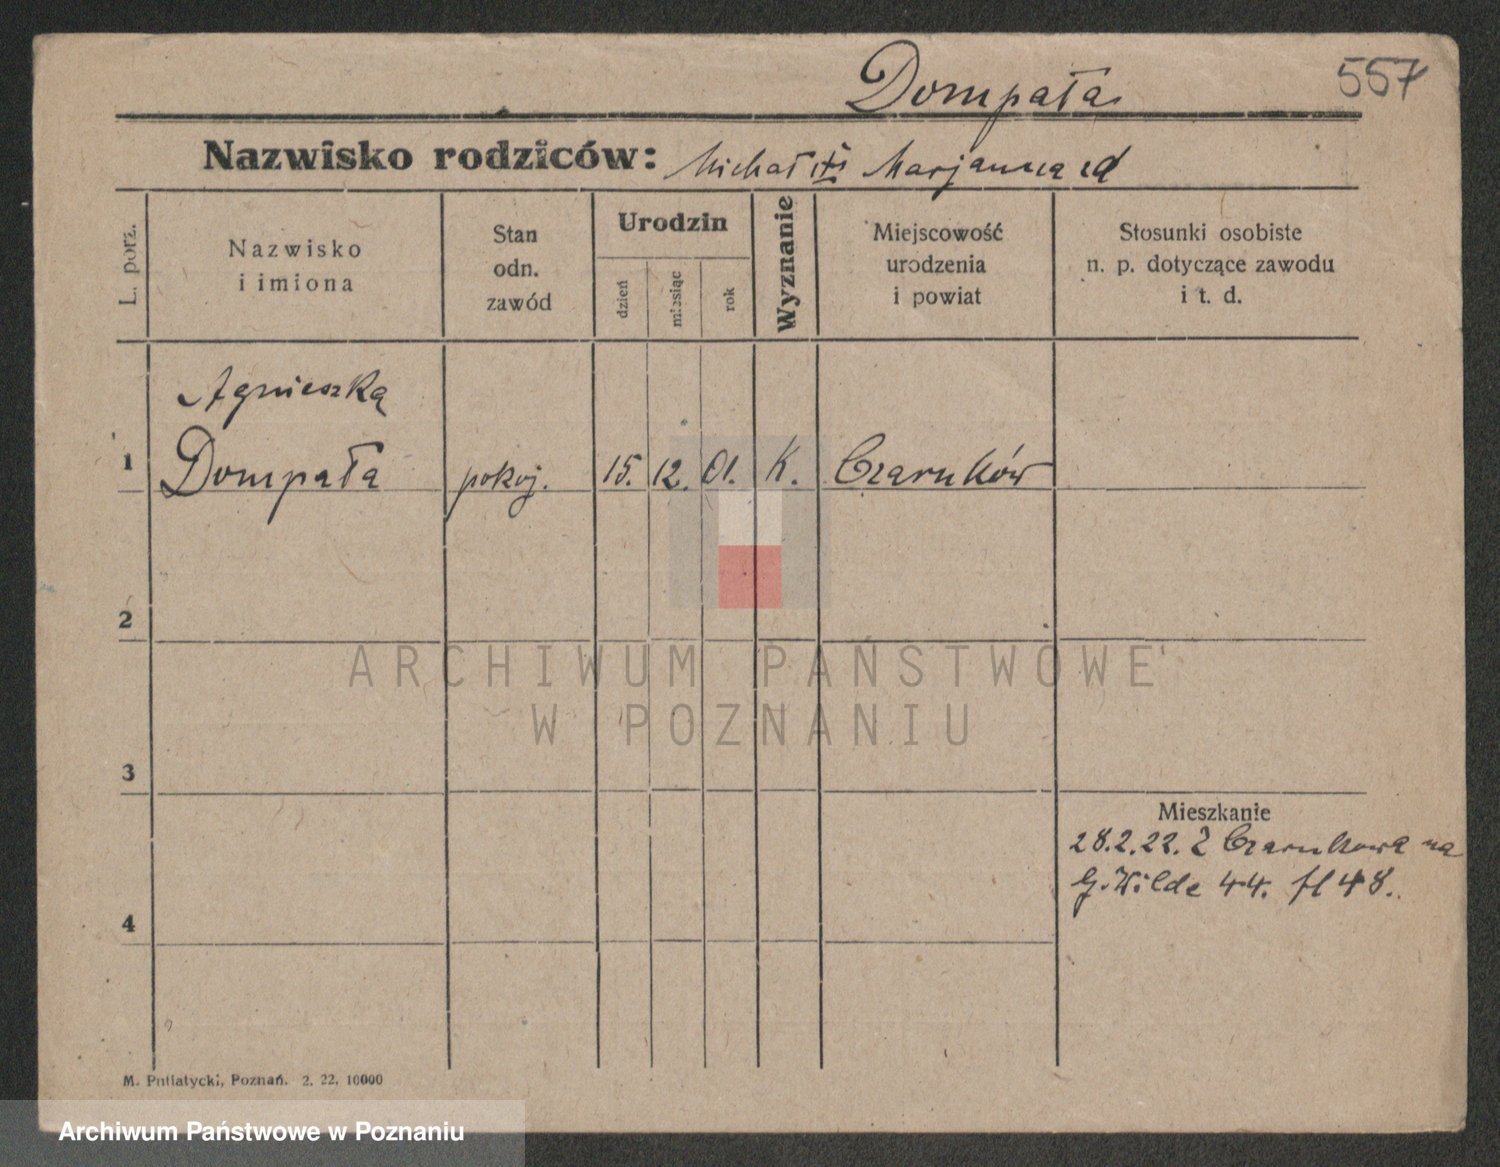 Dompała 557
Nazwisko rodziców: Michał Marjanna
L. porz.
Nazwisko
i imiona
Stan
odn.
zawód
Urodzin
dzień
miesiąc
rok
Wyznanie
Miejscowość
urodzenia
i powiat
Stosunki osobiste
n. p. dotyczące zawodu
i t. d.
Agnieszka
1 Dompała pokoj. 15. 12. 01. K. Czarnków
2
ARCHIWUM PAŃSTWOWE
W POZNANIU
3
Mieszkanie
28.2.22. Z Czarnkowa na
G. Wilde 44. 48.
4
M. Putiatycki, Poznań. 2. 22. 10000
Archiwum Państwowe w Poznaniu